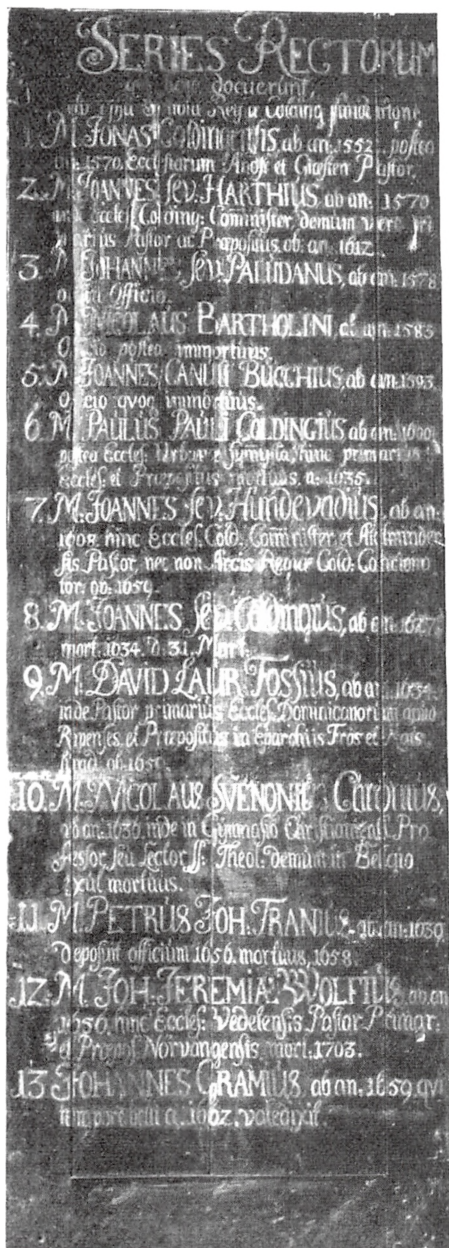 SERIES RECTORUM
qui hic docuerunt,
ab ipsa Schola Regia Colding fundatione
1. M. JONAS COLDINGENSIS, ab an: 1552. postea
an: 1570. Ecclesiarum et Pastor,
2. M. JOANNES Sev: HARTHIUS, ab an: 1570
Eccles. Colding: Comminister, demum vero pri
marius Pastor ac Præpositus, ob: an. 1612.
3. M. JOHANNES Sev: PALUDANUS, ab an: 1578
Officio.
4. M. NICOLAUS BARTHOLINI, ab an: 1583
Officio postea immortuus.
5. M. JOANNES CANUTI BUCCHIUS, ab an: 1593.
Officio qvoq immortuus.
6. M. PAULUS PAULI COLDINGIUS ab an: 1600
postea Eccles: Symmysta, hinc primarius
Eccles. et Præpositus mortuus, a: 1635.
7. M. JOANNES Sev: Hundevadius, ab an:
1608. hinc Eccles. Cold: Comminister et
sis Pastor, nec non Arcis Regiæ Cold: Conciona
tor. ob: 1659.
8. M. JOANNES Sev: COLDINGIUS, ab an: 1627
mort. 1634. d. 31. Mart:
9. M. DAVID LAUR: FOSSIUS, ab an: 1634
inde Pastor primarius Eccles. Dominicanorum apud
Ripenses, et Præpositus in Eparchiis Frös et
10. M. NICOLAUS SVENONIUS
ab an: 1636. inde in Gymnasio Pro
fessor, seu Lector SS: Theol: demum in Belgio
Exul mortuus.
11. M. PETRUS JOH: TRANIUS, ab an: 1639
deposuit officium 1656. mortuus, 1658.
12. M. JOH: JEREMIÆ WOLFIUS, ab an
1656, hinc Eccles: Vedelensis Pastor Primar:
et Præpos: Norvangensis, mort: 1703.
13 JOHANNES GRAMIUS, ab an: 1659 qvi
tempore belli a. 1662. valedixit.